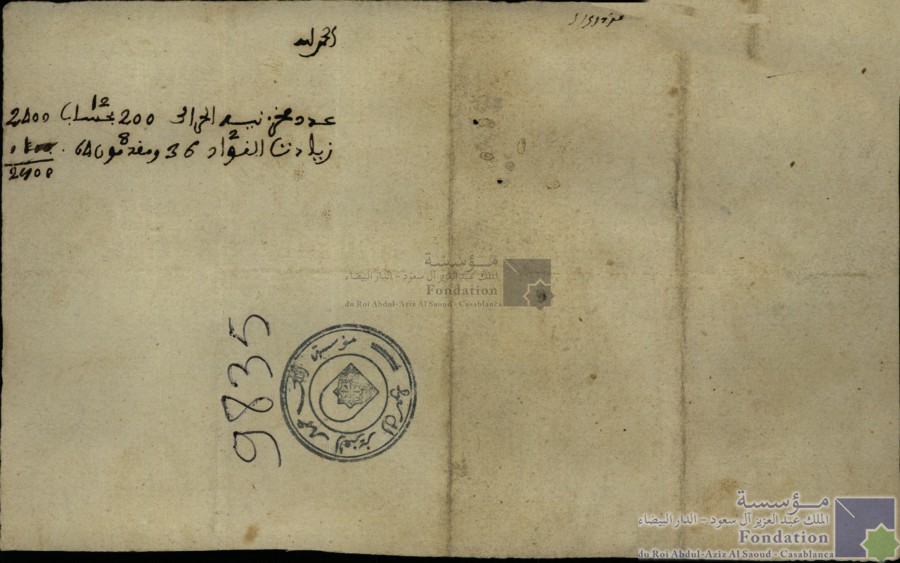 الحمد لله
عدد مخزنيه الحراك 200 بحساب 12 2400
زيادت القواد 36 2 ومقدمو 64 8
2900
9835
مؤسسة
الملك عبد العزيز آل سعود - الدار البيضاء
Fondation
du Roi Abdul-Aziz Al Saoud - Casablanca
مؤسسة الملك عبد العزيز آل سعود
مؤسسة
الملك عبد العزيز آل سعود - الدار البيضاء
Fondation
du Roi Abdul-Aziz Al Saoud - Casablanca